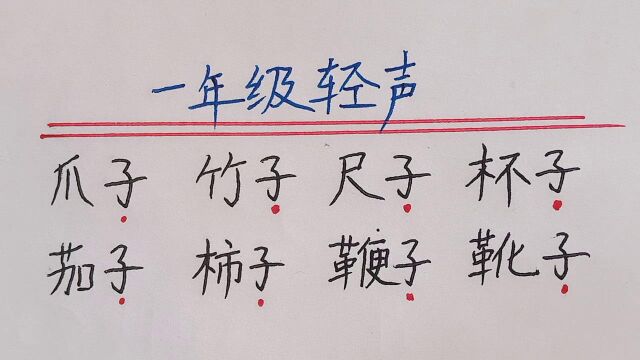 一年级轻声
爪子 竹子 尺子 杯子
茄子 柿子 鞭子 靴子